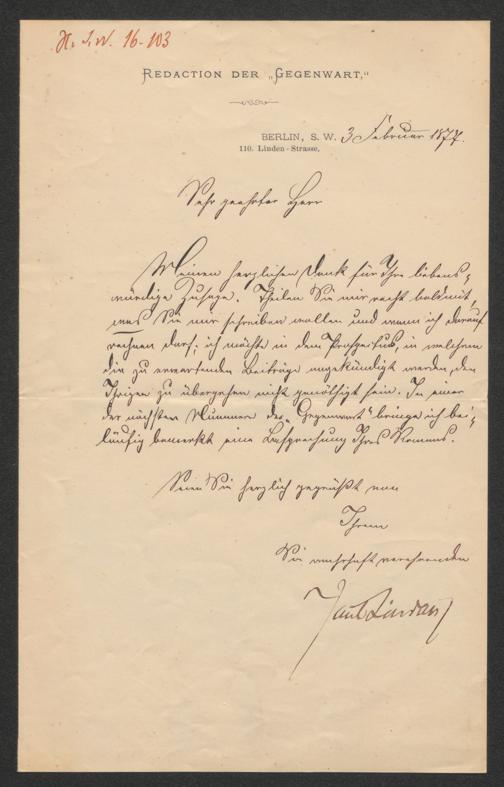 H. I. N. 16-103
REDACTION DER „GEGENWART.“
BERLIN, S. W. 3 Februar 1877.
110. Linden-Strasse.
Sehr geehrter Herr
Meinen herzlichen Dank für Ihre liebens-
würdige Zusage. Theilen Sie mir recht bald mit,
was Sie mir schreiben wollen und wann ich darauf
rechnen darf; ich möchte in dem Prospectus, in welchem
die zu erwartenden Beiträge angekündigt werden, den
Ihrigen zu übergehen nicht genöthigt sein. In einer
der nächsten Nummern der „Gegenwart“ bringe ich bei-
läufig bemerkt eine Besprechung Ihres Romans.
Seien Sie herzlich gegrüßt von
Ihrem
Sie wahrhaft verehrenden
Paul Lindau